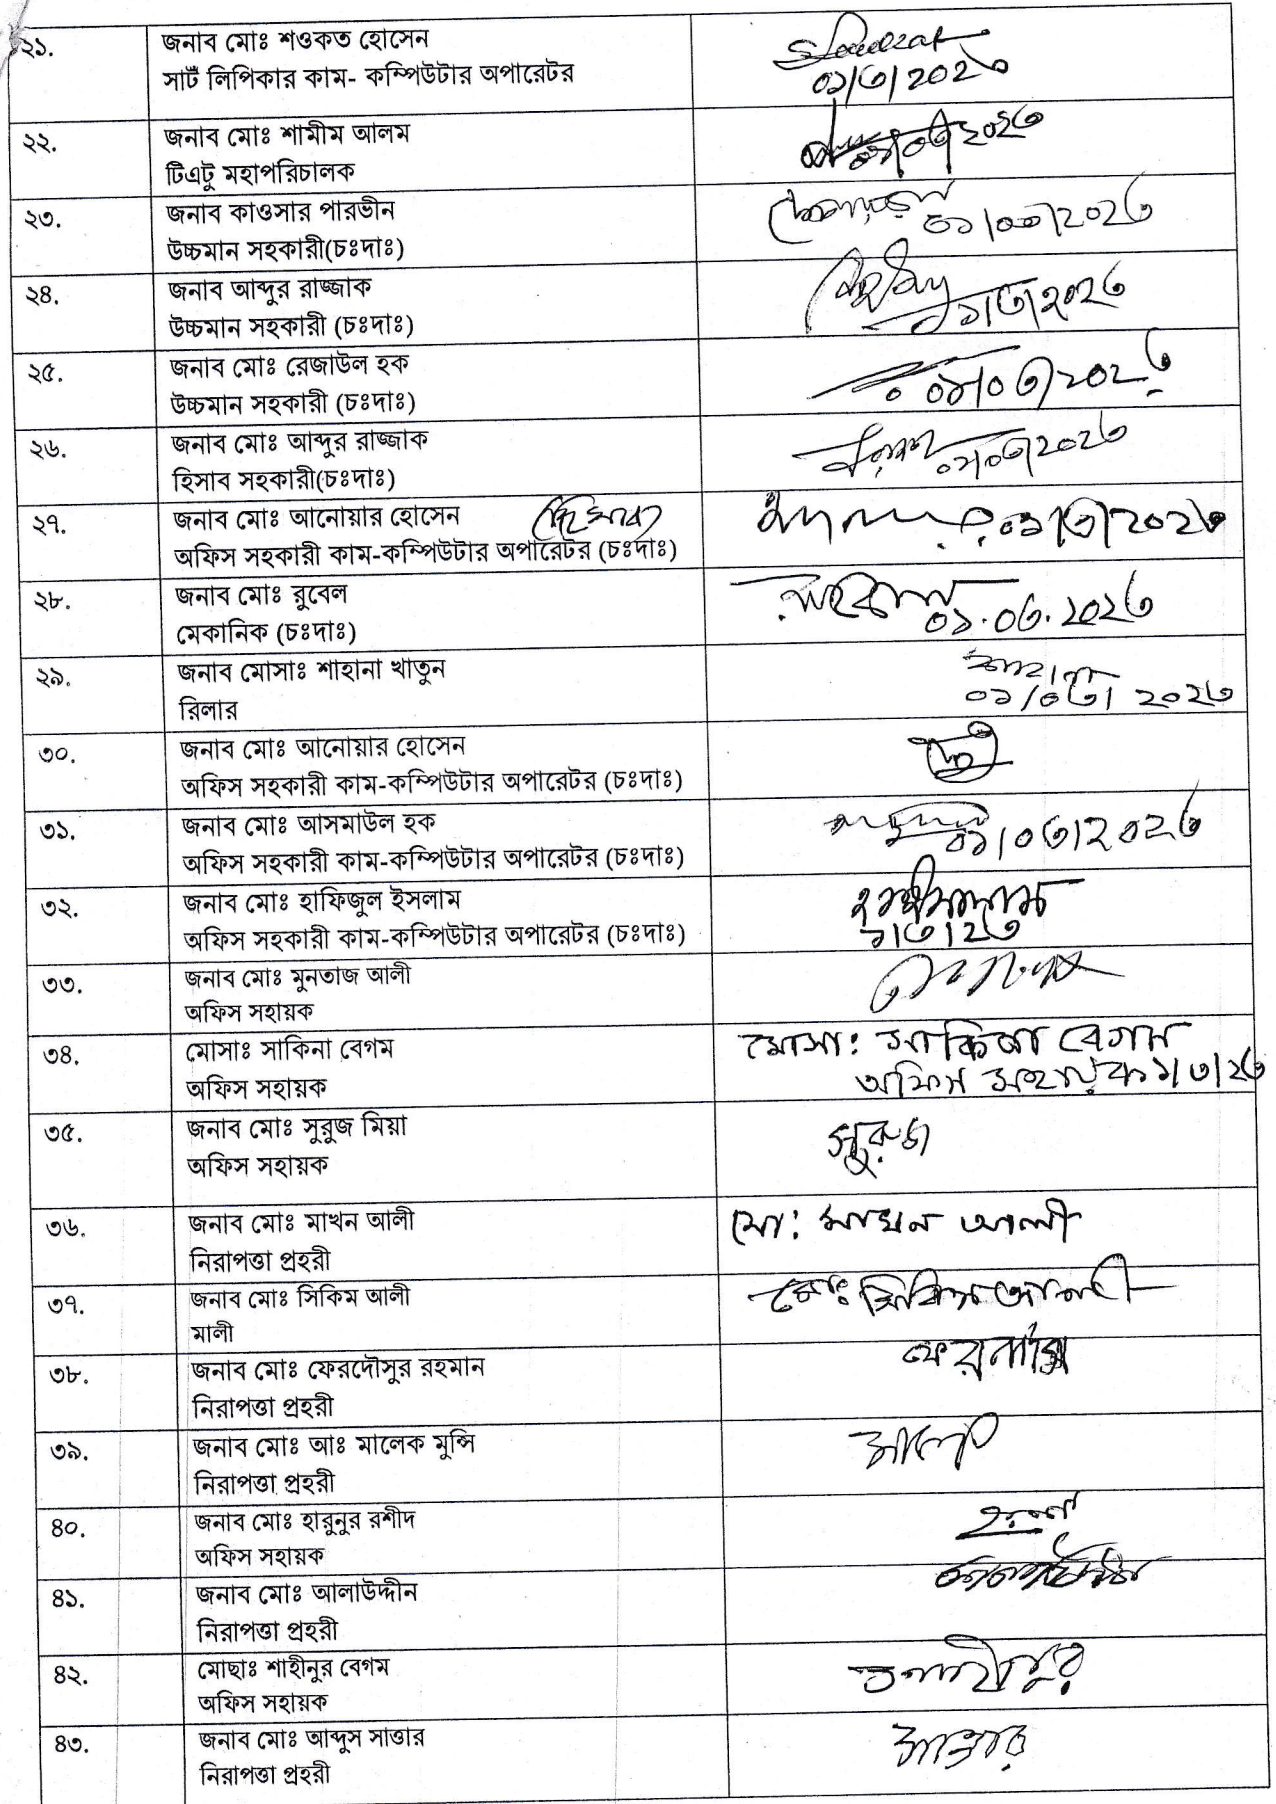 ২১.
জনাব মোঃ শওকত হোসেন
সার্ট লিপিকার কাম- কম্পিউটার অপারেটর
০১/৩/২০২৩
২২.
জনাব মোঃ শামীম আলম
টিএটু মহাপরিচালক
২৩.
জনাব কাওসার পারভীন
উচ্চমান সহকারী(চঃদাঃ)
০১/০৩/২০২৩
২৪.
জনাব আব্দুর রাজ্জাক
উচ্চমান সহকারী (চঃদাঃ)
১/৩/২০২৩
২৫.
জনাব মোঃ রেজাউল হক
উচ্চমান সহকারী (চঃদাঃ)
০১/০৩/২০২৩
২৬.
জনাব মোঃ আব্দুর রাজ্জাক
হিসাব সহকারী(চঃদাঃ)
০১/০৩/২০২৩
২৭.
জনাব মোঃ আনোয়ার হোসেন (হিসাব)
অফিস সহকারী কাম-কম্পিউটার অপারেটর (চঃদাঃ)
০১/৩/২০২৩
২৮.
জনাব মোঃ রুবেল
মেকানিক (চঃদাঃ)
০১.০৩.২০২৩
২৯.
জনাব মোসাঃ শাহানা খাতুন
রিলার
শাহানা
০১/০৩/২০২৩
৩০.
জনাব মোঃ আনোয়ার হোসেন
অফিস সহকারী কাম-কম্পিউটার অপারেটর (চঃদাঃ)
৩১.
জনাব মোঃ আসমাউল হক
অফিস সহকারী কাম-কম্পিউটার অপারেটর (চঃদাঃ)
০১/০৩/২০২৩
৩২.
জনাব মোঃ হাফিজুল ইসলাম
অফিস সহকারী কাম-কম্পিউটার অপারেটর (চঃদাঃ)
১/৩/২৩
৩৩.
জনাব মোঃ মুনতাজ আলী
অফিস সহায়ক
৩৪.
মোসাঃ সাকিনা বেগম
অফিস সহায়ক
মোসা: সাকিনা বেগম
অফিস সহায়ক ১/৩/২৩
৩৫.
জনাব মোঃ সুরুজ মিয়া
অফিস সহায়ক
সুরুজ
৩৬.
জনাব মোঃ মাখন আলী
নিরাপত্তা প্রহরী
মো: মাখন আলী
৩৭.
জনাব মোঃ সিকিম আলী
মালী
মোঃ সিকিম আলী
৩৮.
জনাব মোঃ ফেরদৌসুর রহমান
নিরাপত্তা প্রহরী
৩৯.
জনাব মোঃ আঃ মালেক মুন্সি
নিরাপত্তা প্রহরী
মালেক
৪০.
জনাব মোঃ হারুনুর রশীদ
অফিস সহায়ক
৪১.
জনাব মোঃ আলাউদ্দীন
নিরাপত্তা প্রহরী
৪২.
মোছাঃ শাহীনুর বেগম
অফিস সহায়ক
শাহীনুর
৪৩.
জনাব মোঃ আব্দুস সাত্তার
নিরাপত্তা প্রহরী
সাত্তার